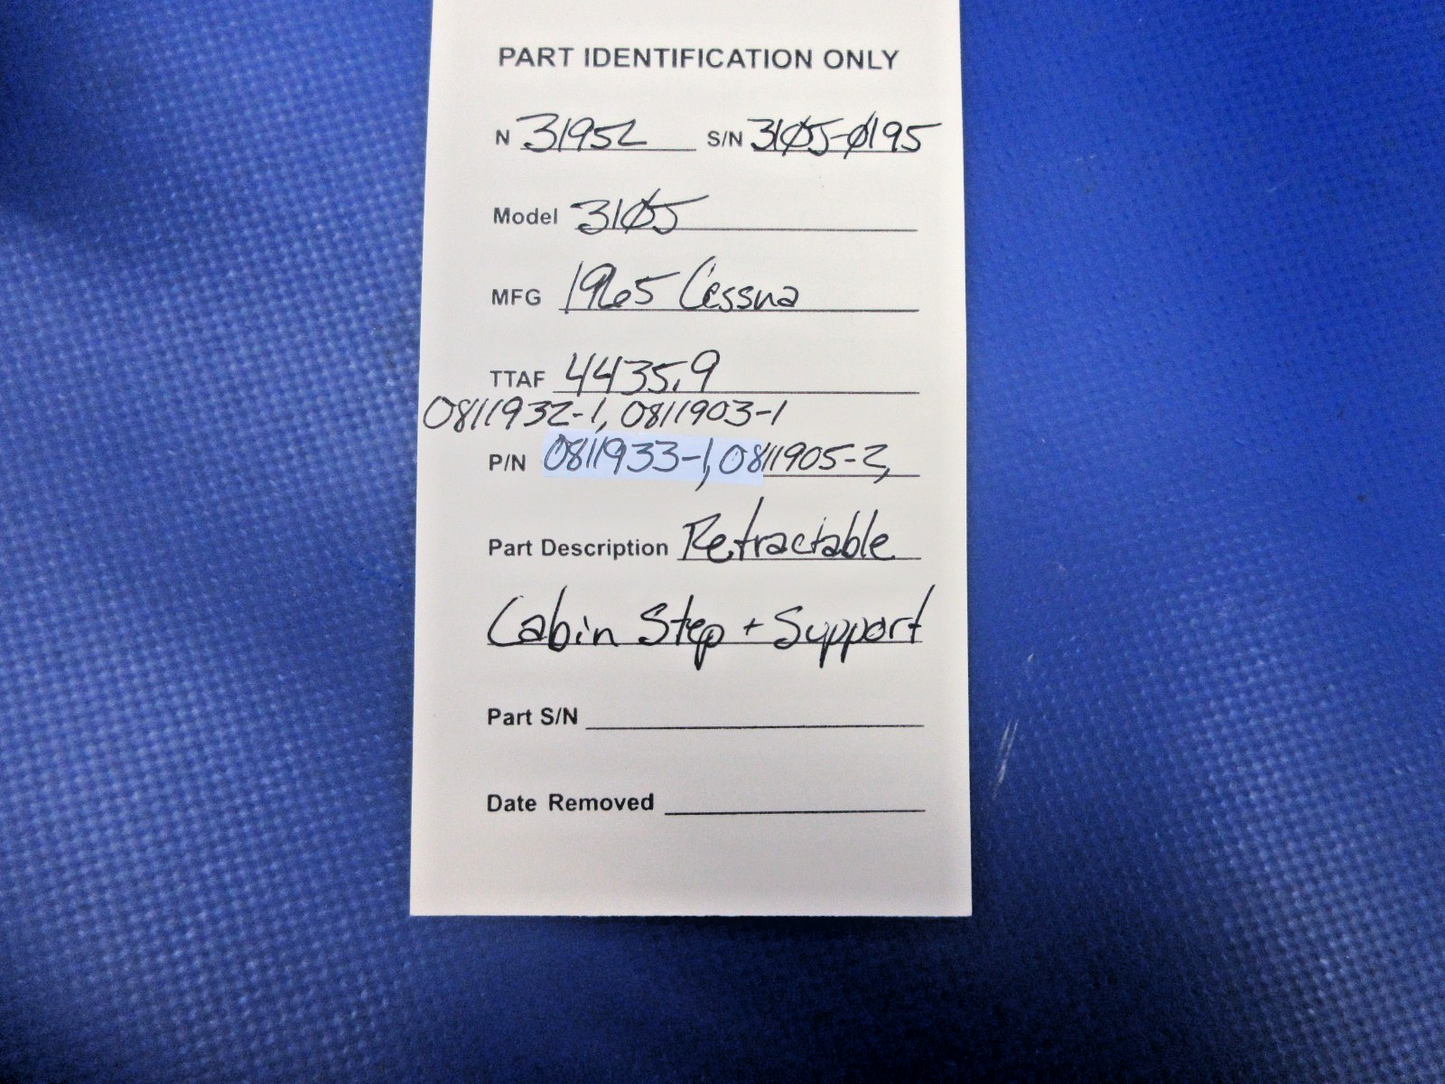 PART IDENTIFICATION ONLY
N 31952 S/N 3105-0195
Model 3105
MFG 1965 Cessna
TTAF 4435.9
0811932-1, 0811903-1
P/N 0811933-1, 0811905-2,
Part Description Retractable
Cabin Step + Support
Part S/N
Date Removed